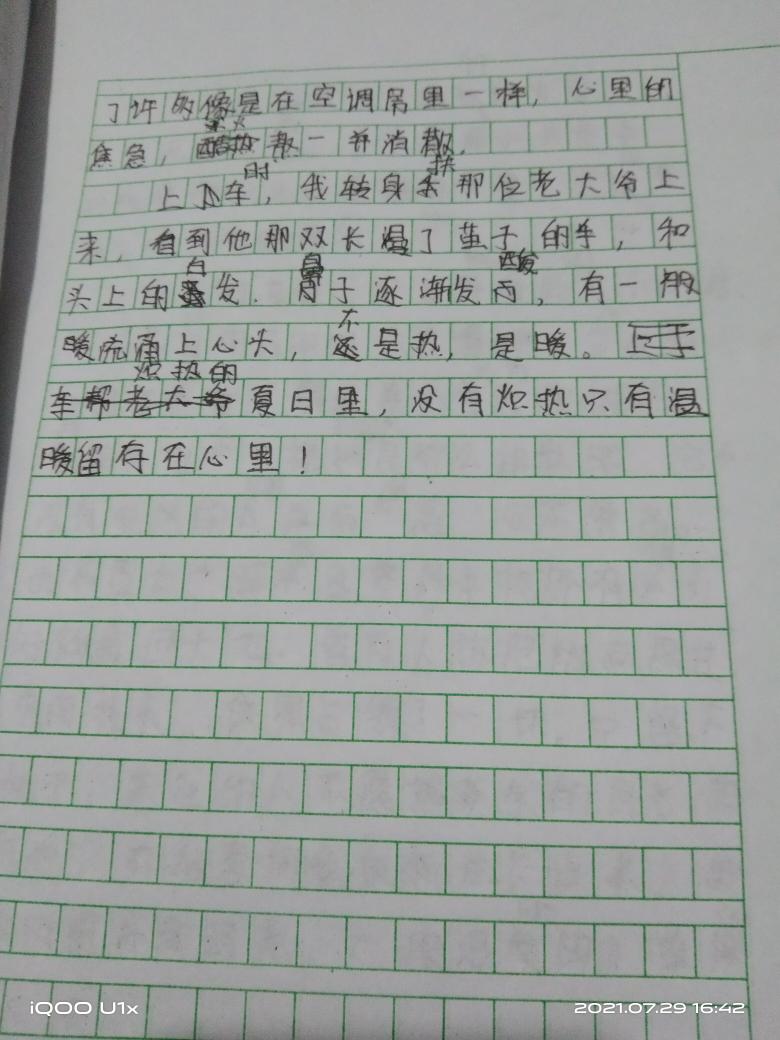 了许多像是在空调房里一样，心里的
焦急，酷热都一并消散.
上车时，我转身扶那位老大爷上
来，看到他那双长满了茧子的手，和
头上的白发.鼻子逐渐发酸，有一股
暖流涌上心头，不是热，是暖。
炽热的夏日里，没有炽热只有温
暖留存在心里！
iQOO U1x
2021.07.29 16:42